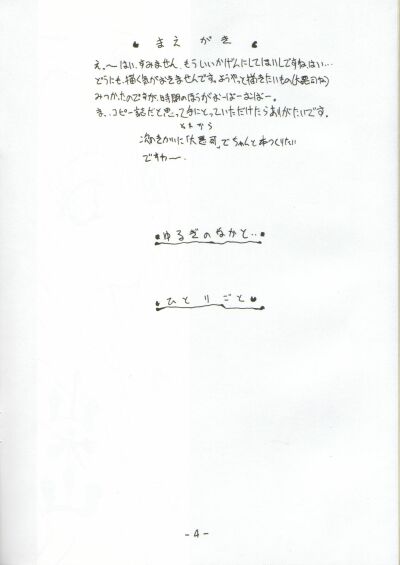 まえがき
え。〜はい、すみません、もういいかげんにしてほしいですね、はい…
どうにも、描く気がおきませんです。ようやっと描きたいもの(大悪司ね)
みつかったのですが、時間のほうがおーばーおーばー。
ま、コピー誌だと思って手にとっていただけたらありがたいです。
それから
次のきかいに「大悪司」でちゃんと本つくりたい
ですわ〜。
ゆるぎのなかと‥
ひとりごと
-4-